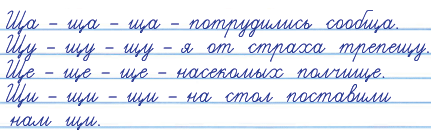 Ща - ща - ща - потрудились сообща.
Щу - щу - щу - я от страха трепещу.
Ще - ще - ще - насекомых полчище.
Щи - щи - щи - на стол поставили
нам щи.